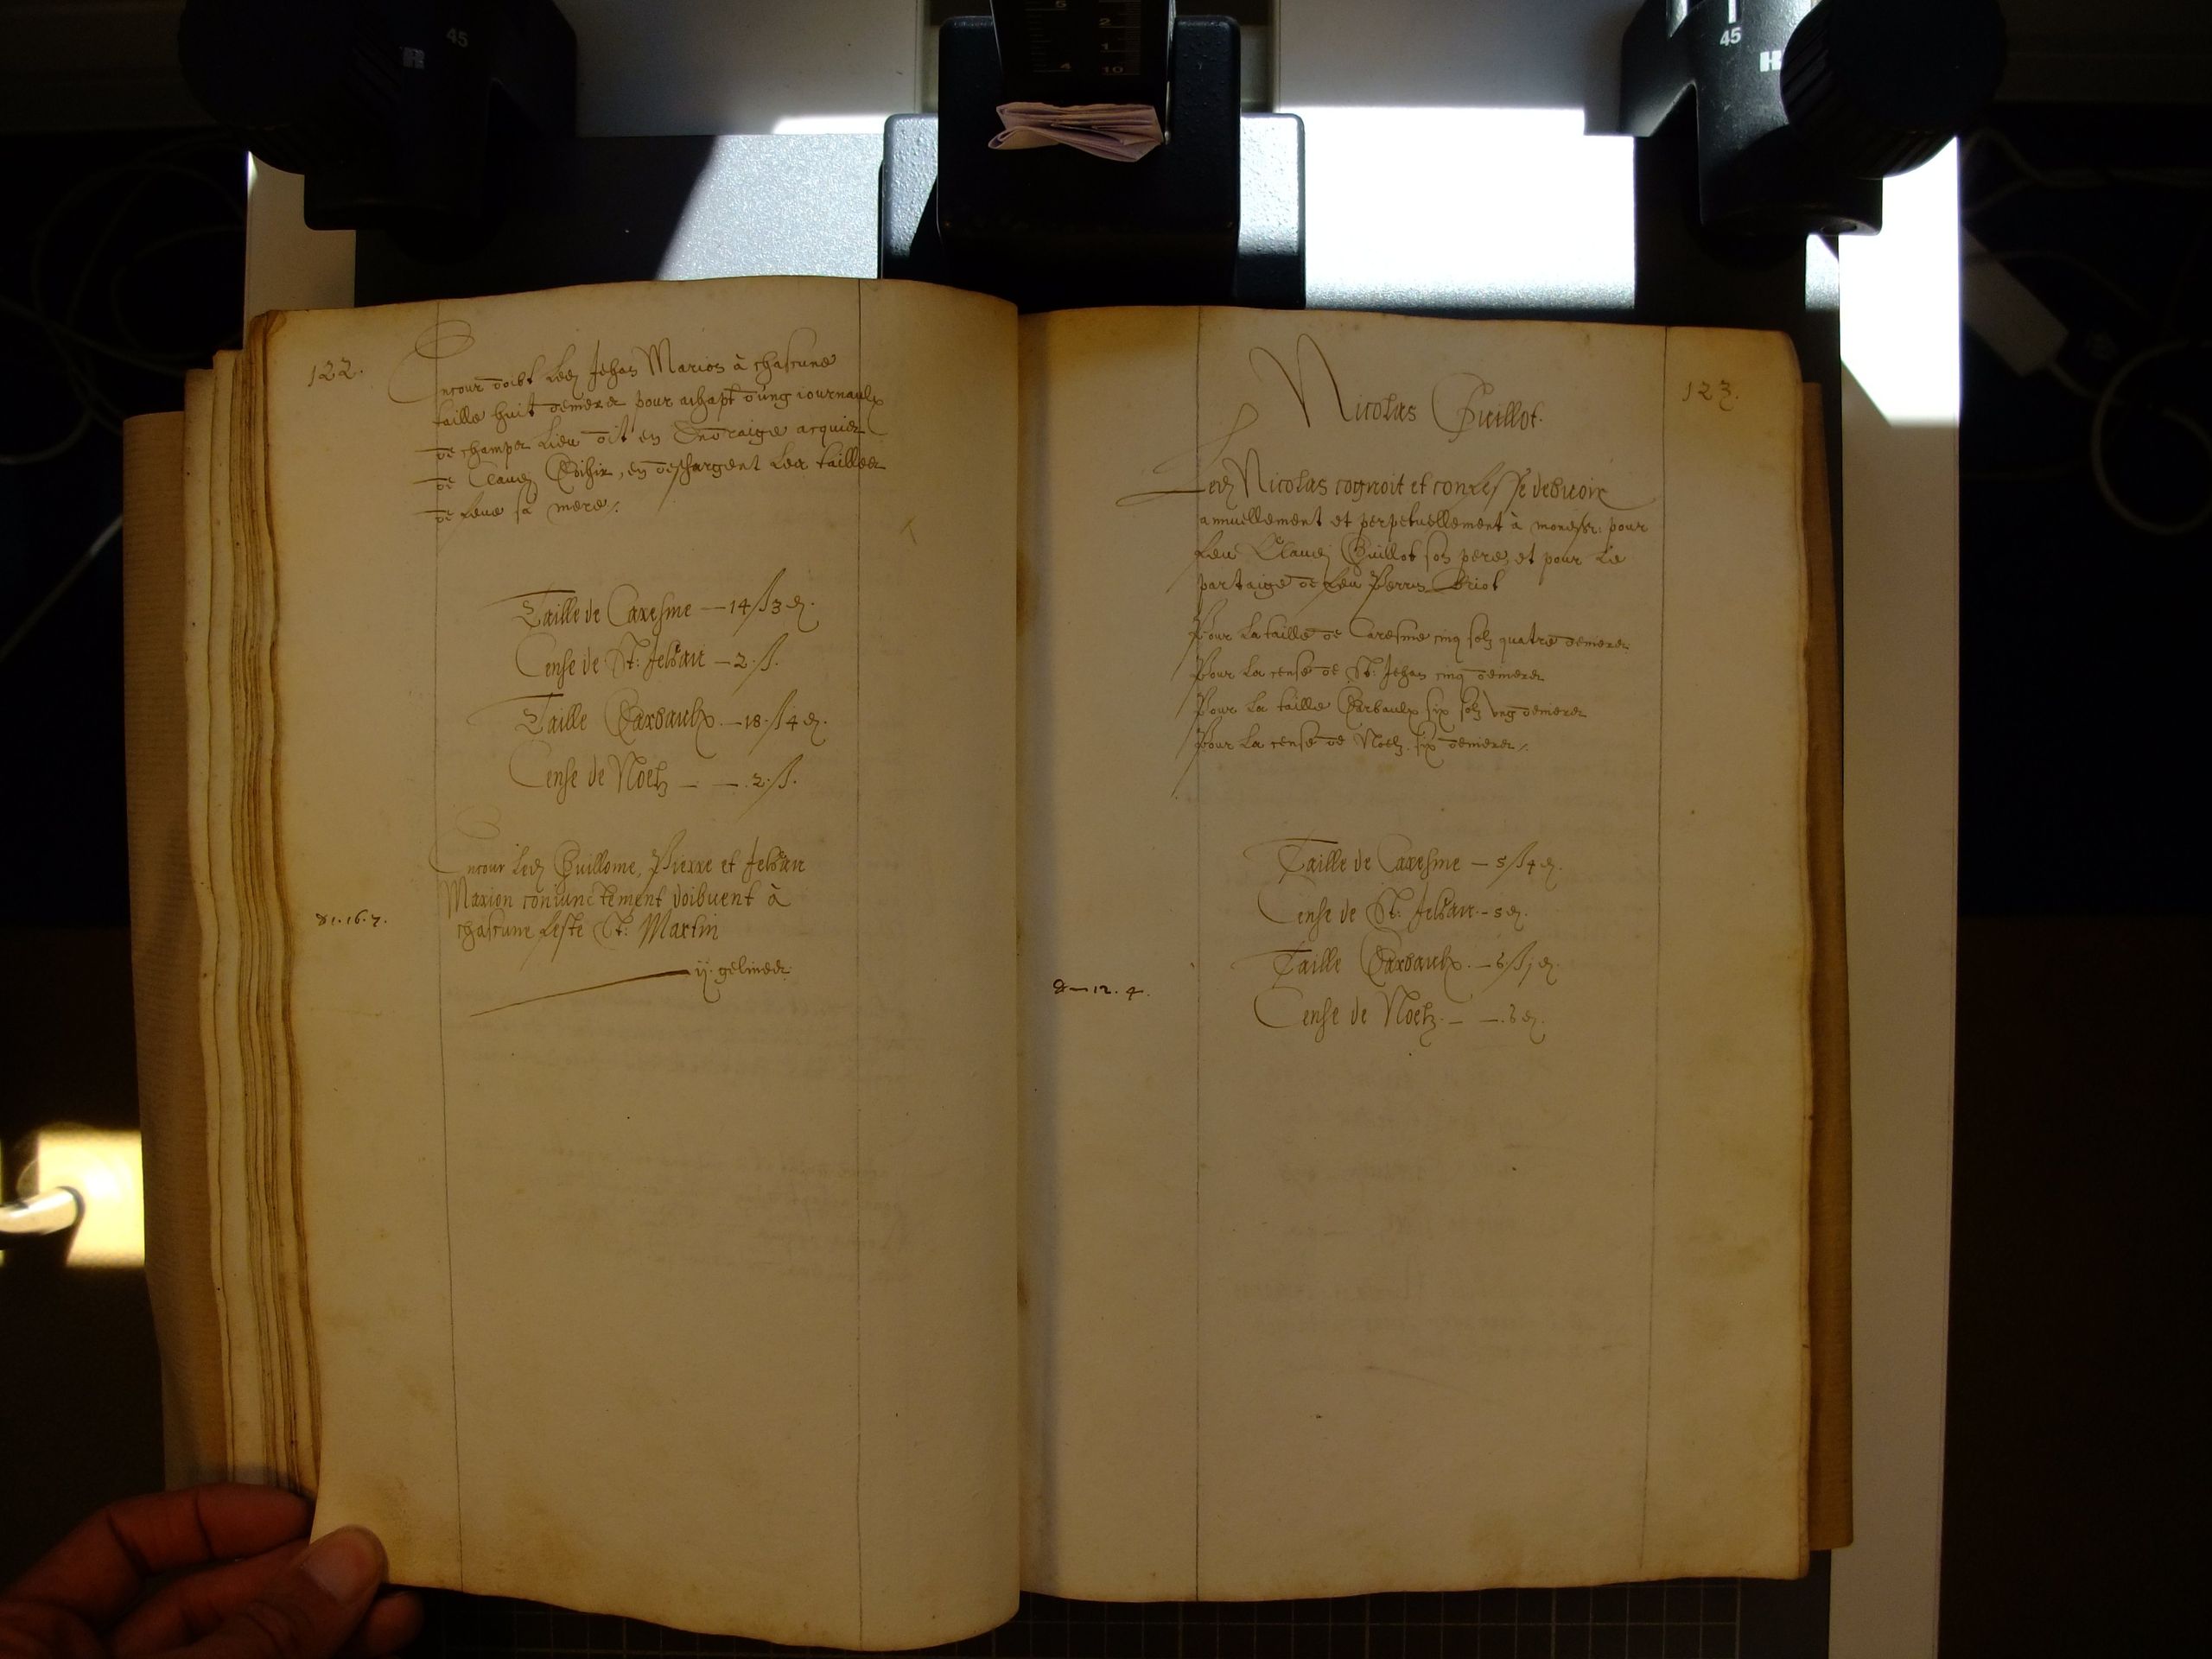 122.
Encour doibt Led Jehan Marion à chascune
taille huit deniers pour achapt d'ung iournaulx
de champs lieu dit en acquier
de Claude en deschargent Les tailles
de feue sa mere
Taille de Caresme — 14 ß 3 d.
Cense de St: Jehan — 2 ß.
Taille Barbaulx. — 18. ß 4 d.
Cense de Noelz — — . 2. ß.
Encour Led Guillome, Pierre et Jehan
Marion coniunctement doibuent à
chascune feste St: Martin
ij. gelines
1. 16. 7.
123.
Nicolas Guillot.
Led Nicolas cognoit et confesse debuoir
annuellement et perpetuellement à mondsr: pour
feu Claude Guillot son pere, et pour le
partaige de feu Perrin
Pour La taille de Caresme cinq solz quatre deniers
Pour La cense de St: Jehan cinq deniers
Pour La taille Barbaulx six solz ung deniers
Pour La cense de Noelz. six deniers
Taille de Caresme — 5 ß 4 d.
Cense de St: Jehan. - 5 d.
Taille Barbaulx. — 6 ß j d.
Cense de Noelz. — — . 6 d.
— 12. 4.
45
H
45
H
5
2
1
4
10